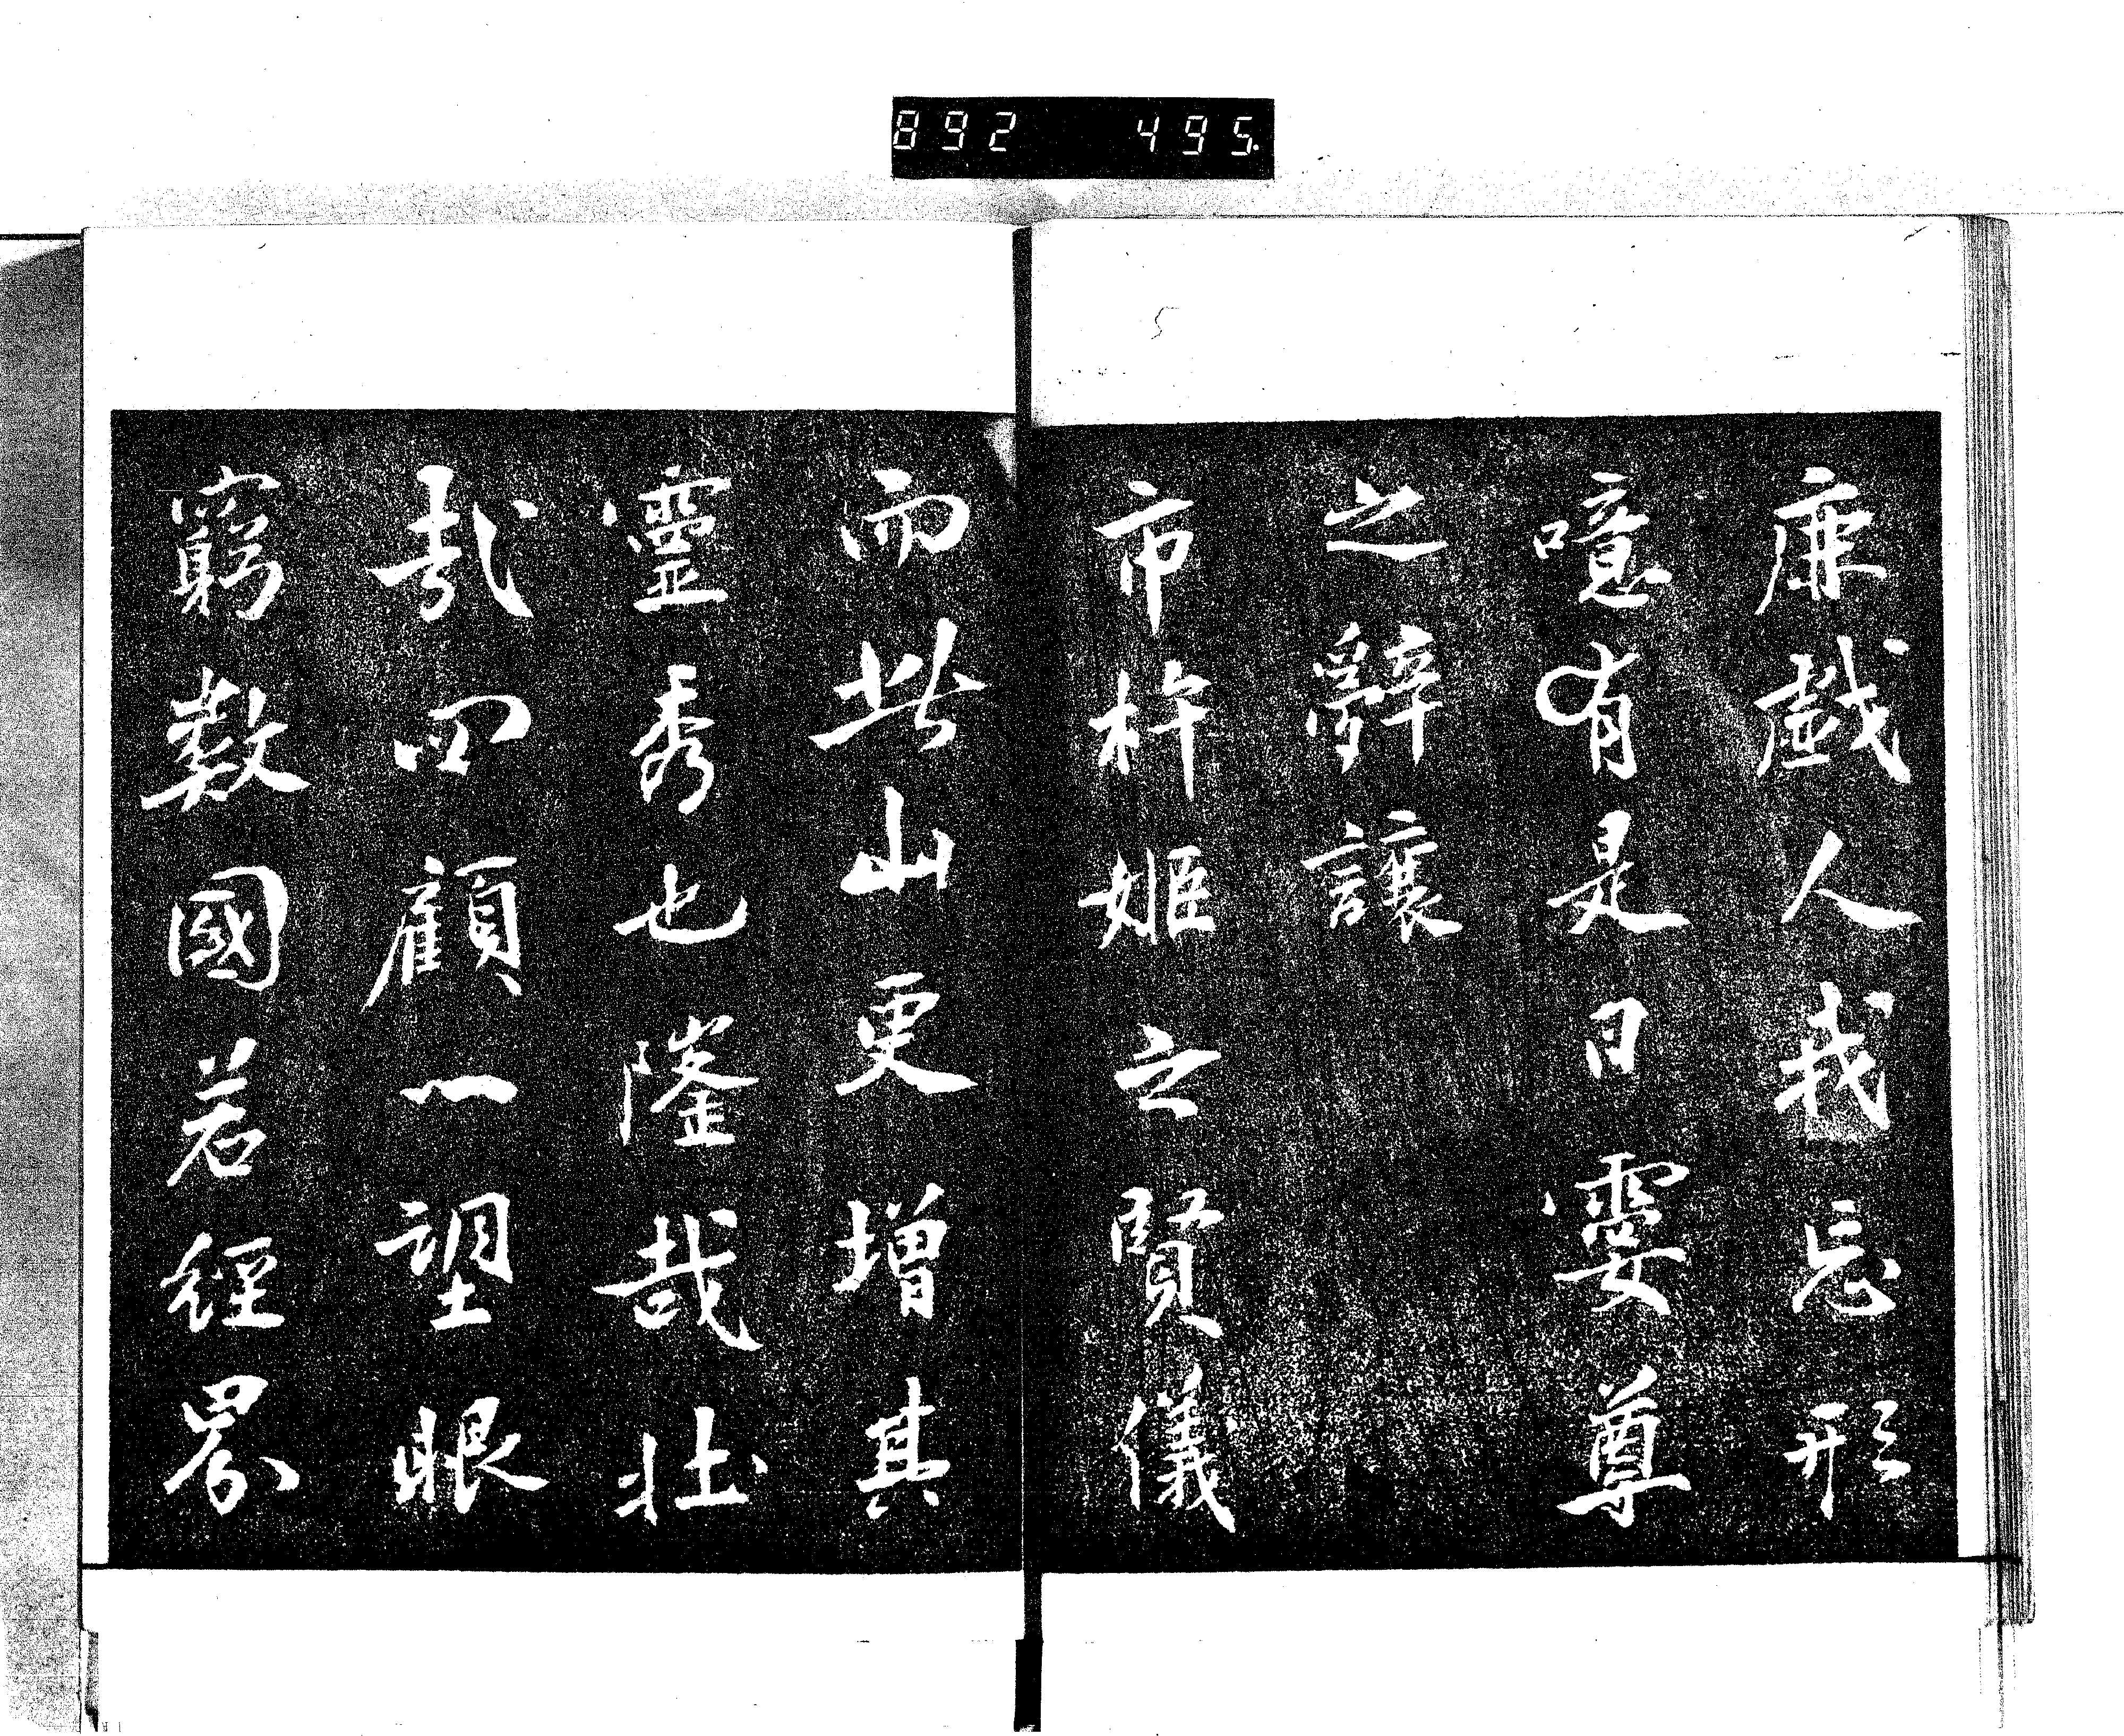 892 495.
廉戲人我忘形
噫有是日靈尊
之辭讓
市杵姬之賢儀
而此山更增其
靈秀也隆哉壯
哉四顧一望眼
窮數國若經界